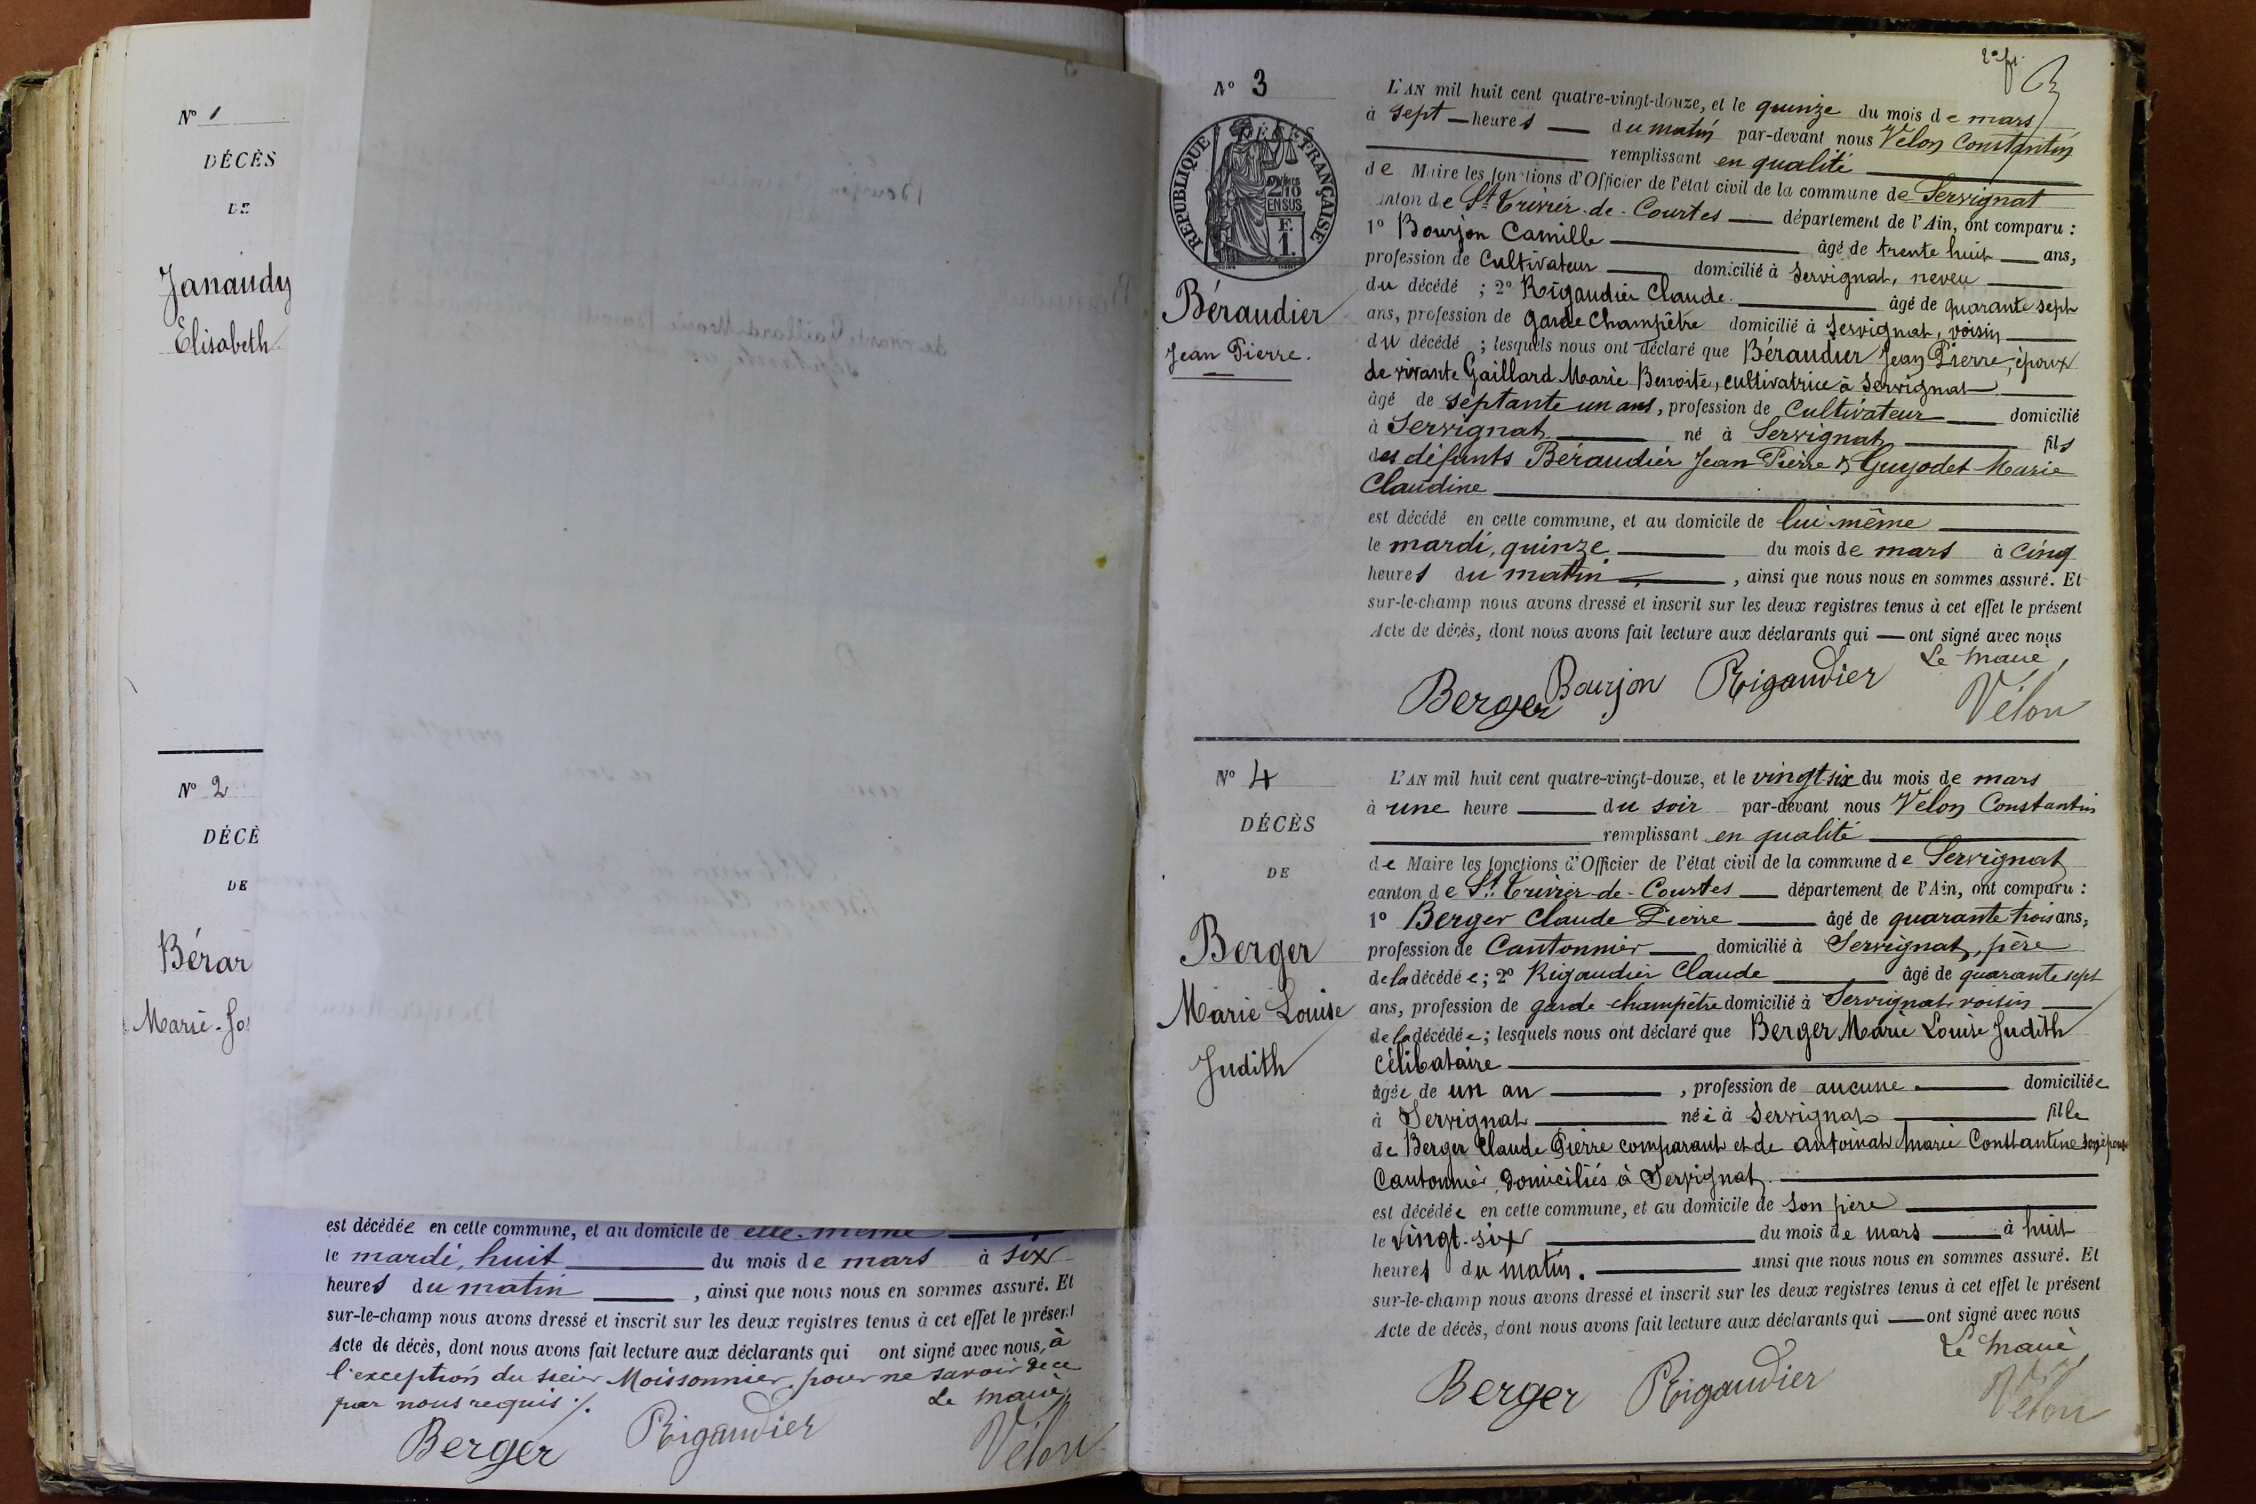 Nº 1
DÉCÈS
DE
Janaudy
Elisabeth
Nº 2
DÉCÈ
DE
Bérar
Marie-Jo
est décédée en cette commune, et au domicile de elle-même
le mardi, huit du mois de mars à six
heures du matin, ainsi que nous nous en sommes assuré. Et
sur-le-champ nous avons dressé et inscrit sur les deux registres tenus à cet effet le présent
Acte de décès, dont nous avons fait lecture aux déclarants qui ont signé avec nous, à
l'exception du sieur Moissonnier, pour ne savoir de ce
par nous requis ./.
Le Maire,
Berger Rigaudier Vélon
Nº 3
RÉPUBLIQUE FRANÇAISE
2/10 EN SUS
E. 1.
Béraudier
Jean Pierre.
L'AN mil huit cent quatre-vingt-douze, et le quinze du mois de mars
à sept heures du matin par-devant nous Vélon Constantin
remplissant en qualité
de Maire les fonctions d'Officier de l'état civil de la commune de Servignat
canton de St Trivier-de-Courtes département de l'Ain, ont comparu :
1º Bourjon Camille âgé de trente huit ans,
profession de Cultivateur domicilié à Servignat, neveu
du décédé ; 2º Rigaudier Claude. âgé de quarante sept
ans, profession de garde Champêtre domicilié à Servignat, voisin
du décédé ; lesquels nous ont déclaré que Béraudier Jean Pierre, époux
de vivante Gaillard Marie Benoite, cultivatrice à Servignat
âgé de septante un ans, profession de Cultivateur domicilié
à Servignat né à Servignat fils
des défunts Béraudier Jean Pierre & Guyodet Marie
Claudine
est décédé en cette commune, et au domicile de lui-même
le mardi, quinze du mois de mars à cinq
heures du matin, ainsi que nous nous en sommes assuré. Et
sur-le-champ nous avons dressé et inscrit sur les deux registres tenus à cet effet le présent
Acte de décès, dont nous avons fait lecture aux déclarants qui — ont signé avec nous
Le Maire,
Berger Bourjon Rigaudier Vélon
Nº 4
DÉCÈS
DE
Berger
Marie Louise
Judith
L'AN mil huit cent quatre-vingt-douze, et le vingt six du mois de mars
à une heure du soir par-devant nous Vélon Constantin
remplissant en qualité
de Maire les fonctions d'Officier de l'état civil de la commune de Servignat
canton de St Trivier-de-Courtes département de l'Ain, ont comparu :
1º Berger Claude Pierre âgé de quarante trois ans,
profession de Cantonnier domicilié à Servignat, père
de la décédée ; 2º Rigaudier Claude âgé de quarante sept
ans, profession de garde champêtre domicilié à Servignat voisin
de la décédée ; lesquels nous ont déclaré que Berger Marie Louise Judith
célibataire
âgée de un an, profession de aucune domiciliée
à Servignat née à Servignat fille
de Berger Claude Pierre comparant et de Antoinat Marie Constantine son épouse
Cantonnier, domiciliés à Servignat.
est décédée en cette commune, et au domicile de son père
le vingt-six du mois de mars à huit
heures du matin. ainsi que nous nous en sommes assuré. Et
sur-le-champ nous avons dressé et inscrit sur les deux registres tenus à cet effet le présent
Acte de décès, dont nous avons fait lecture aux déclarants qui — ont signé avec nous
Le Maire,
Berger Rigaudier Vélon